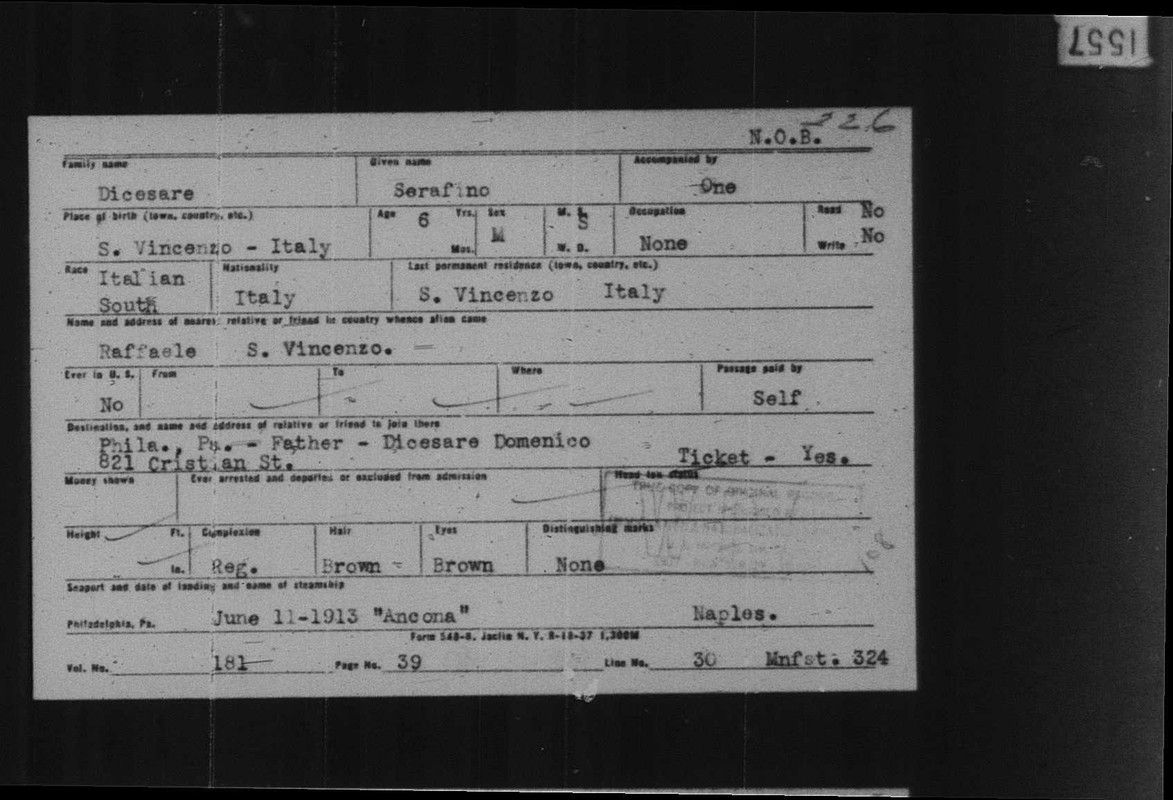 1557
226
N.O.B.
Family name Given name Accompanied by
Dicesare Serafino One
Place of birth (town, country, etc.) Age 6 Yrs. Mos. Sex M M. S. S W. D. Occupation Read No
S. Vincenzo - Italy None Write No
Race Nationality Last permanent residence (town, country, etc.)
Italian
South Italy S. Vincenzo Italy
Name and address of nearest relative or friend in country whence alien came
Raffaele S. Vincenzo.
Ever in U. S. From To Where Passage paid by
No Self
Destination, and name and address of relative or friend to join there
Phila., Pa. - Father - Dicesare Domenico
821 Cristian St. Ticket - Yes.
Money shown Ever arrested and deported or excluded from admission Head tax status
TRUE COPY OF ORIGINAL
Height Ft. In. Complexion Hair Eyes Distinguishing marks
Reg. Brown Brown None
Seaport and date of landing and name of steamship
Philadelphia, Pa. June 11-1913 "Ancona" Naples.
Form 548-B. Jaclin N. Y. 8-18-37 1,300M
Vol. No. 181 Page No. 39 Line No. 30 Mnfst. 324